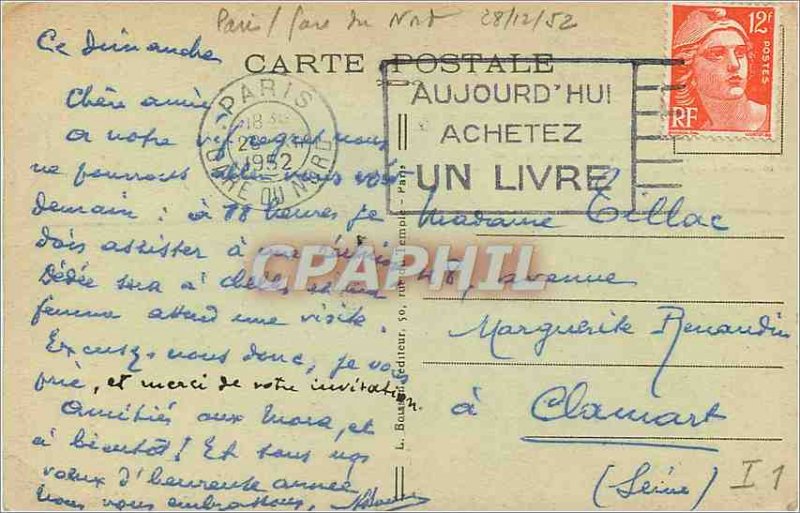 Paris / Gare du Nord 28/12/52
Ce dimanche
CARTE POSTALE
PARIS
18
28
1952
GARE DU NORD
AUJOURD'HUI
ACHETEZ
UN LIVRE
12F
POSTES
RF
Chère amie,
A notre vif regret nous
ne pourrons aller vous voir
demain : à 18 heures je
dois assister à une
Dédée sera à et ma
femme attend une visite.
Excusez-nous donc, je vous
prie, et merci de votre invitation.
Amitiés aux et
à bientôt ! Et tous nos
vœux d'heureuse année
Nous vous embrassons,
L. Editeur, 50, rue du Temple - Paris
Madame Tillac
48, avenue
Marguerite Renaudin
à Clamart
(Seine)
I 1
CPAPHIL